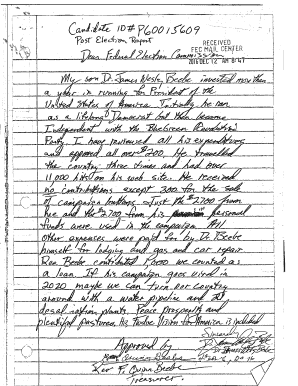 Candidate ID# P60015609
Post Election Report
RECEIVED
FEC MAIL CENTER
2016 DEC 12 AM 8:47
Dear Federal Election Commission
My son Dr. James Nesle Beebe invested more than
a year in running for President of the
United States of America Initially he ran
as a lifelong Democrat but then became
Independent with the BlueGreen Revolution
Party. I have reviewed all his expenditures
and approved all over $200. He travelled
the country three times and had over
11,000 hits on his web site. He received
no contributions except 300 for the sale
of campaign buttons. Just the $2700 from
me and the $2,700 from his personal
funds were used in the campaign All
other expenses were paid for by Dr. Beebe
himself for lodging and gas and car repair
Ren Beebe contributed we counted as
a loan. If his campaign goes viral in
2020 maybe we can turn our country
around with a water pipeline and
desalination plants. Peace prosperity and
plentiful pastures His Twelve Vision for America is included
Sincerely
Approved by
Rev F. Quinn Beebe
Treasurer.